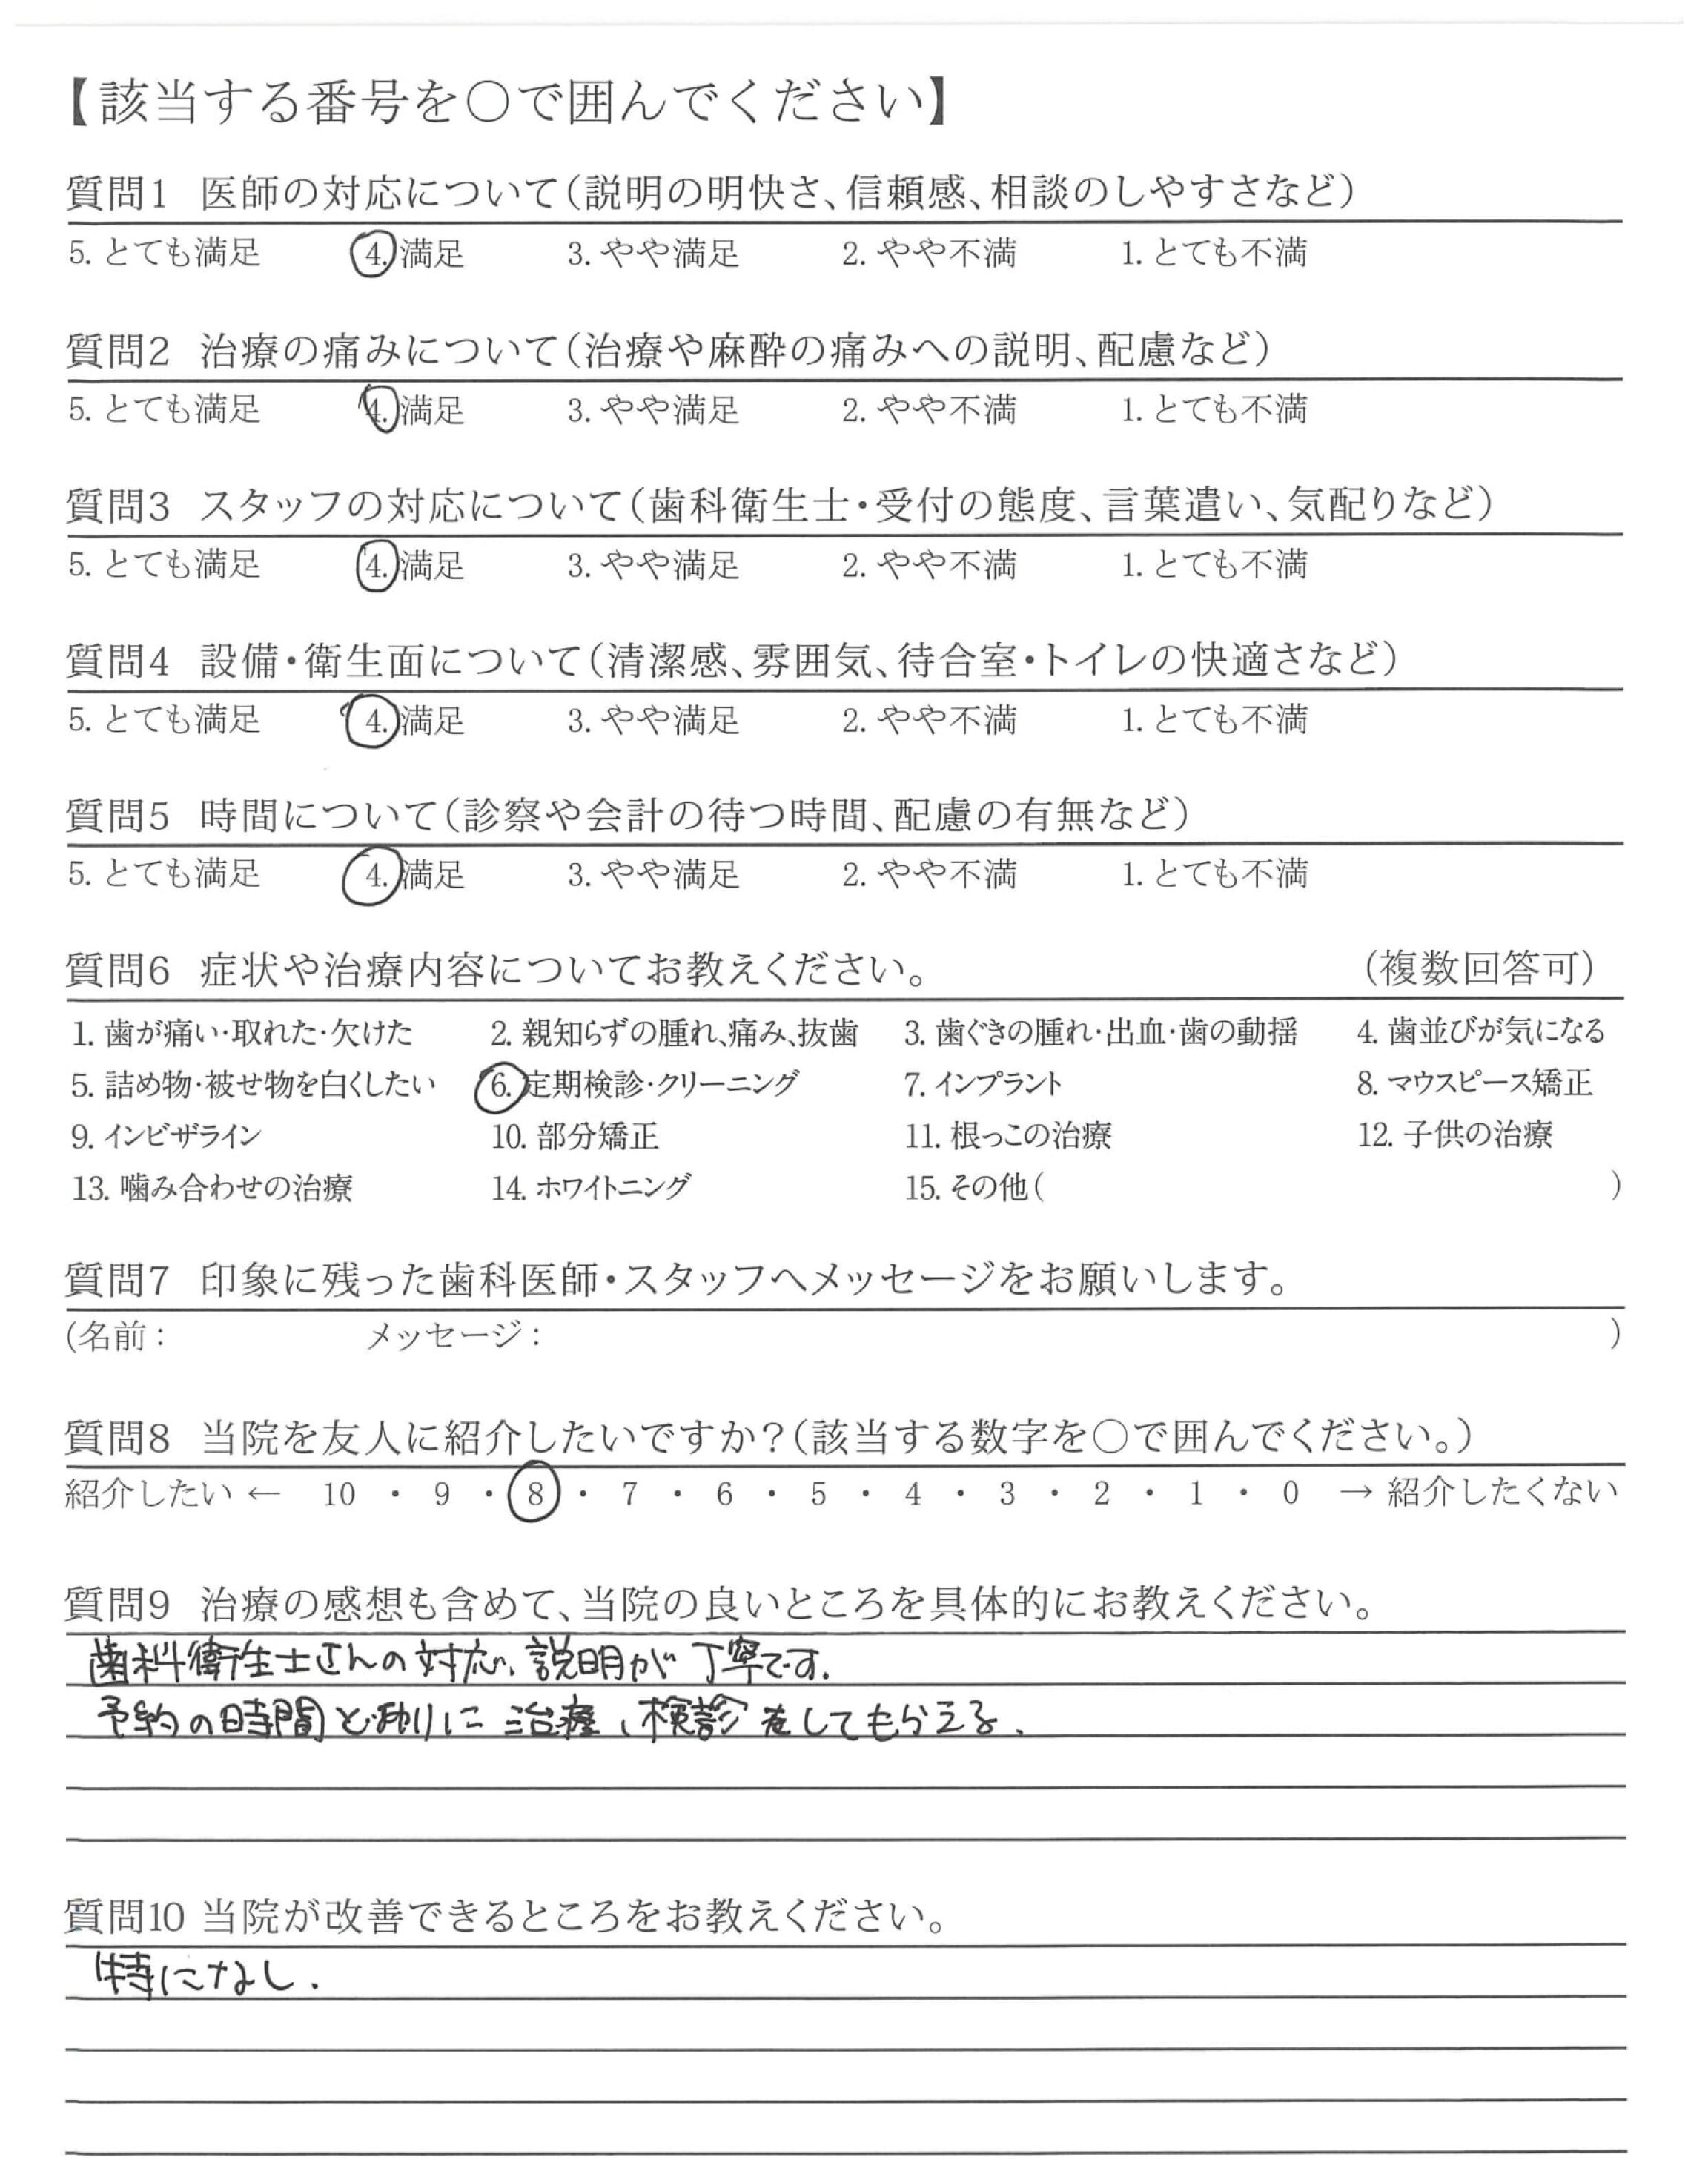 【該当する番号を○で囲んでください】
質問1 医師の対応について(説明の明快さ、信頼感、相談のしやすさなど)
5. とても満足 4. 満足 3. やや満足 2. やや不満 1. とても不満
質問2 治療の痛みについて(治療や麻酔の痛みへの説明、配慮など)
5. とても満足 4. 満足 3. やや満足 2. やや不満 1. とても不満
質問3 スタッフの対応について(歯科衛生士・受付の態度、言葉遣い、気配りなど)
5. とても満足 4. 満足 3. やや満足 2. やや不満 1. とても不満
質問4 設備・衛生面について(清潔感、雰囲気、待合室・トイレの快適さなど)
5. とても満足 4. 満足 3. やや満足 2. やや不満 1. とても不満
質問5 時間について(診察や会計の待つ時間、配慮の有無など)
5. とても満足 4. 満足 3. やや満足 2. やや不満 1. とても不満
質問6 症状や治療内容についてお教えください。 (複数回答可)
1. 歯が痛い・取れた・欠けた 2. 親知らずの腫れ、痛み、抜歯 3. 歯ぐきの腫れ・出血・歯の動揺 4. 歯並びが気になる
5. 詰め物・被せ物を白くしたい 6. 定期検診・クリーニング 7. インプラント 8. マウスピース矯正
9. インビザライン 10. 部分矯正 11. 根っこの治療 12. 子供の治療
13. 噛み合わせの治療 14. ホワイトニング 15. その他( )
質問7 印象に残った歯科医師・スタッフへメッセージをお願いします。
(名前: メッセージ: )
質問8 当院を友人に紹介したいですか?(該当する数字を○で囲んでください。)
紹介したい ← 10 ・ 9 ・ 8 ・ 7 ・ 6 ・ 5 ・ 4 ・ 3 ・ 2 ・ 1 ・ 0 → 紹介したくない
質問9 治療の感想も含めて、当院の良いところを具体的にお教えください。
歯科衛生士さんの対応、説明が丁寧です.
予約の時間どおりに治療、検診をしてもらえる.
質問10 当院が改善できるところをお教えください。
特になし.